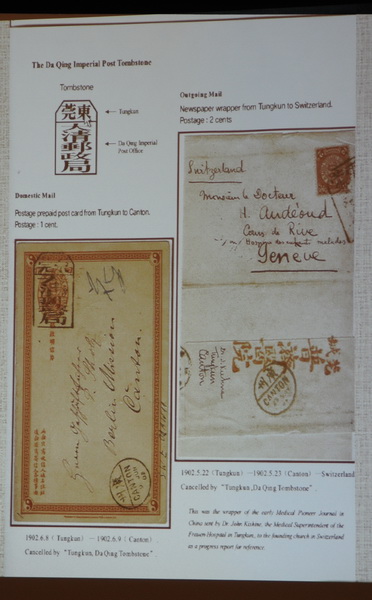 The Da Qing Imperial Post Tombstone
Tombstone
東莞
大清郵政局
Tungkun
Da Qing Imperial
Post Office
Domestic Mail
Postage prepaid post card from Tungkun to Canton.
Postage : 1 cent.
Berlin Mission
Canton.
CANTON
1902.6.8 ( Tungkun ) — 1902.6.9 ( Canton )
Cancelled by "Tungkun, Da Qing Tombstone".
Outgoing Mail
Newspaper wrapper from Tungkun to Switzerland.
Postage : 2 cents
Switzerland
Monsieur le Docteur
H. Audéoud
Cours de Rive
Genève
Tungkun
Canton
普濟
院
CANTON
1902.5.22 ( Tungkun ) —1902.5.23 (Canton) —Switzerland
Cancelled by "Tungkun, Da Qing Tombstone".
This was the wrapper of the early Medical Pioneer Journal in
China sent by Dr. John Kuhne, the Medical Superintendent of the
Frauen Hospital in Tungkun, to the founding church in Switzerland
as a progress report for reference.